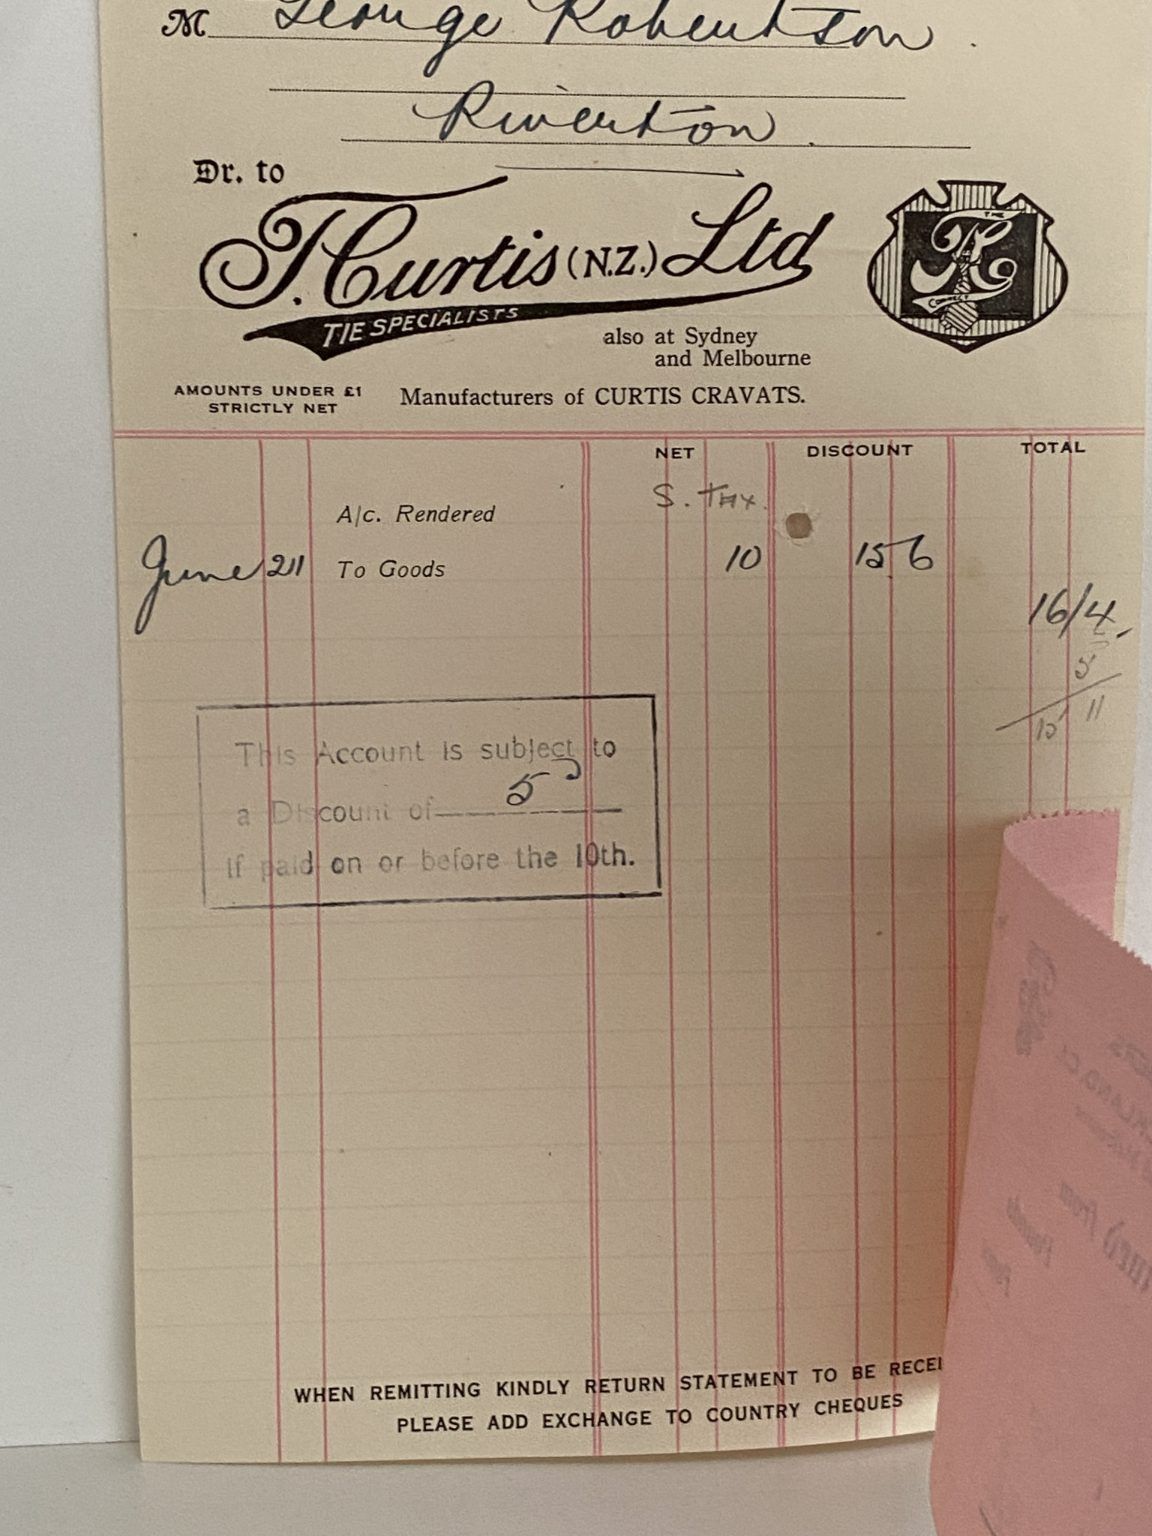 M George Robertson.
Riverton.
Dr. to
T. Curtis (N.Z.) Ltd
TIE SPECIALISTS
also at Sydney
and Melbourne
THE
TC
CORRECT
AMOUNTS UNDER £1
STRICTLY NET
Manufacturers of CURTIS CRAVATS.
NET DISCOUNT TOTAL
A/c. Rendered S. Tax.
June 21 To Goods 10 15 6
16/4.
5
15 11
This Account is subject to
a Discount of 5
if paid on or before the 10th.
WHEN REMITTING KINDLY RETURN STATEMENT TO BE RECEI
PLEASE ADD EXCHANGE TO COUNTRY CHEQUES